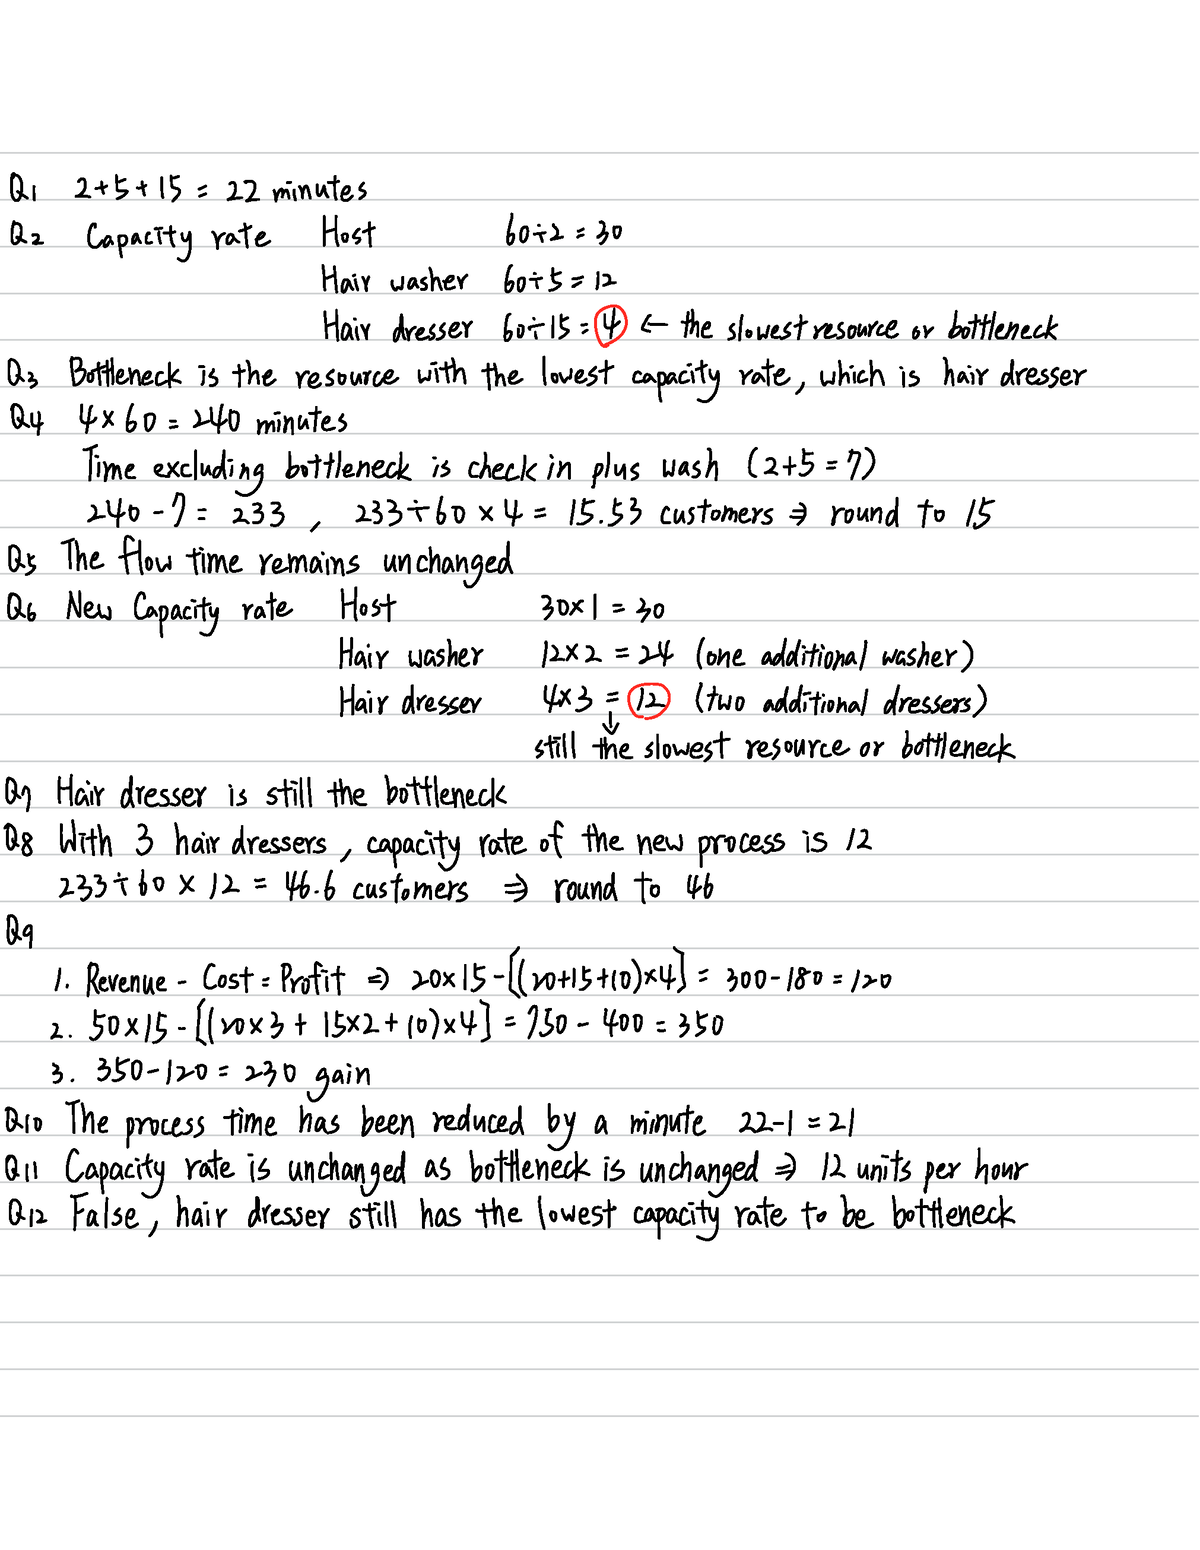 Q1 2+5+15 = 22 minutes
Q2 Capacity rate Host 60÷2 = 30
Hair washer 60÷5 = 12
Hair dresser 60÷15 = 4 ← the slowest resource or bottleneck
Q3 Bottleneck is the resource with the lowest capacity rate, which is hair dresser
Q4 4×60 = 240 minutes
Time excluding bottleneck is check in plus wash (2+5 = 7)
240 - 7 = 233 , 233÷60 × 4 = 15.53 customers ⇒ round to 15
Q5 The flow time remains unchanged
Q6 New Capacity rate Host 30×1 = 30
Hair washer 12×2 = 24 (one additional washer)
Hair dresser 4×3 = 12 (two additional dressers)
↓
still the slowest resource or bottleneck
Q7 Hair dresser is still the bottleneck
Q8 With 3 hair dressers, capacity rate of the new process is 12
233÷60 × 12 = 46.6 customers ⇒ round to 46
Q9
1. Revenue - Cost = Profit ⇒ 20×15-[(20+15+10)×4] = 300-180 = 120
2. 50×15-[(20×3 + 15×2 + 10)×4] = 750 - 400 = 350
3. 350-120 = 230 gain
Q10 The process time has been reduced by a minute 22-1 = 21
Q11 Capacity rate is unchanged as bottleneck is unchanged ⇒ 12 units per hour
Q12 False, hair dresser still has the lowest capacity rate to be bottleneck